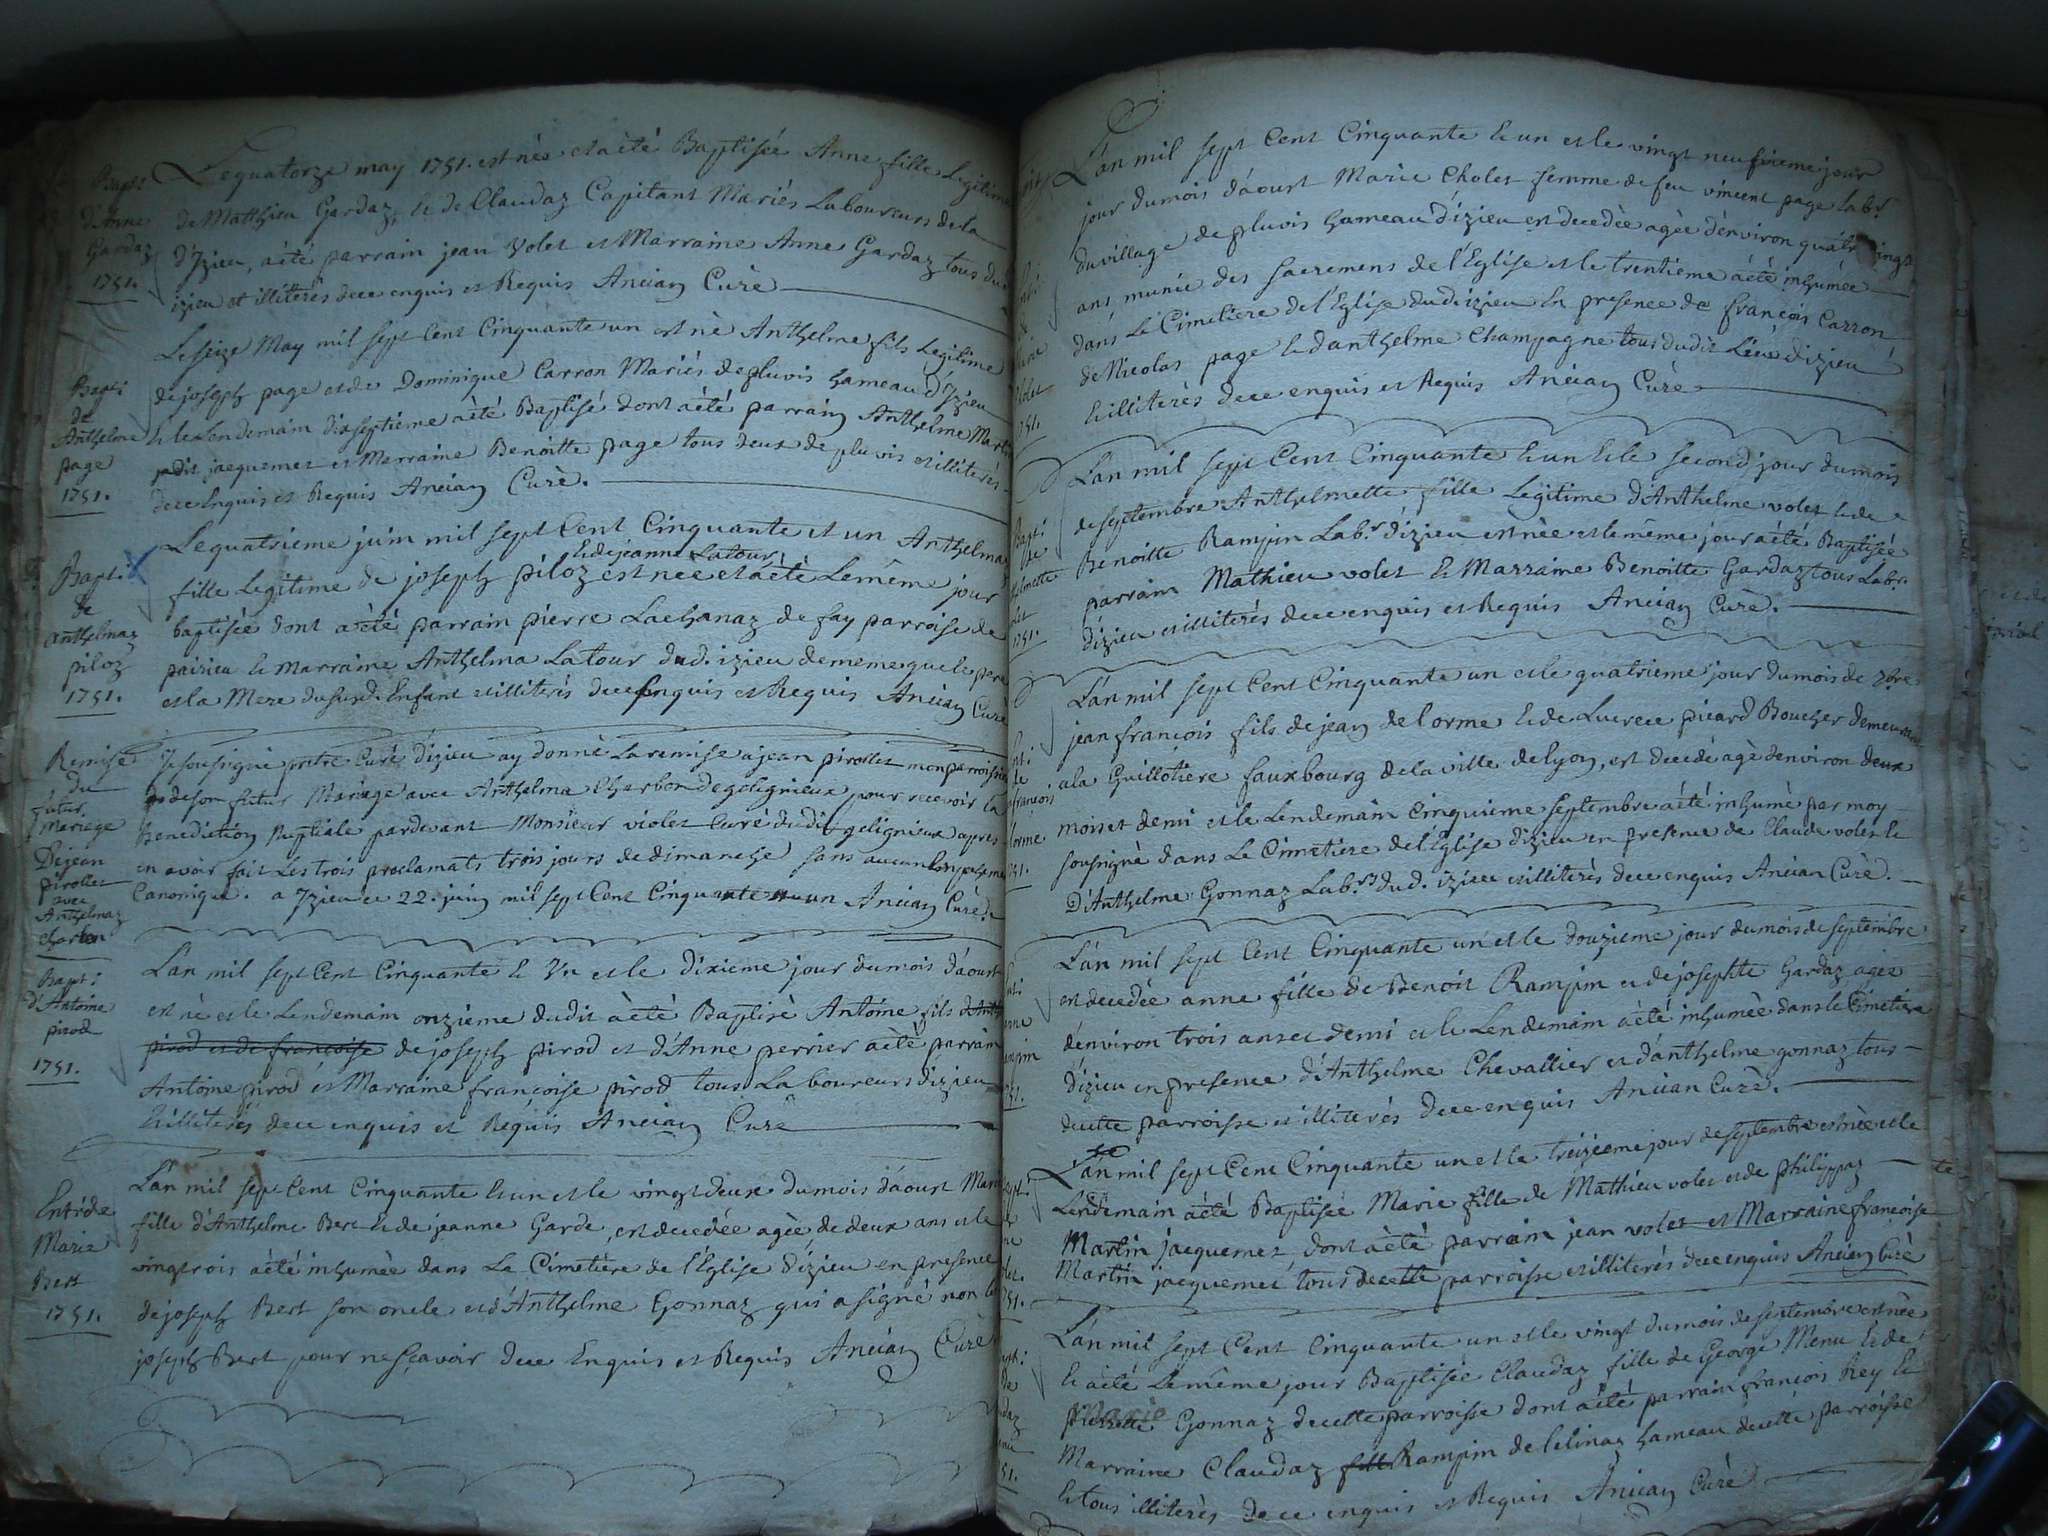 Bapt
d'Anne
Gardaz
1751.
Le quatorze may 1751. est née et a été Baptisée Anne fille Legitime
de Matthieu Gardaz, & de Claudaz Capitant Mariés Laboureurs de la
d'Izieu, a été parrain jean Volet et Marraine Anne Gardaz tous du
izieu et illiterés de ce enquis et Requis Ancian Curè
Bapt:
de
Anthelme
page
1751.
Le seize May mil sept Cent Cinquante un est nè Anthelme fils Legitime
de joseph page et de Dominique Carron Mariés de pluvis hameau d'Izieu
& le Lendemain dixseptieme a èté Baptisé dont a èté parrain Anthelme Martin
jacquemet et Marraine Benoitte page tous deux de pluvis et illiterés
de ce Enquis et Requis Ancian Curè.
Bapt:
de
Anthelmaz
piloz
1751.
Le quatrieme juin mil sept Cent Cinquante et un Anthelma
& de jeanne Latour
fille Legitime de joseph piloz est nee et a èté Le même jour
baptisée dont a èté parrain pierre Lachanaz de fay parroise de
peizieu & marraine Anthelma Latour dud. izieu de meme que le pere
et la Mere du susd. Enfant et illiterés de ce enquis et Requis Ancian Curè
Remise
du
futur
Mariage
De jean
pirollet
avec
Anthelmaz
charbon
Je soussigné pretre Curé d'izieu ay donné La remise a jean pirollet mon parroissien
de son futur Mariage avec Anthelma Charbon de gelignieux pour recevoir la
Benediction Nuptiale pardevant Monsieur violet Curé dudit gelignieux apres
en avoir fait Les trois proclamats trois jours de dimanche sans aucun
Canonique. a Izieu ce 22. juin mil sept Cent Cinquante un Ancian Curè
Bapt:
d'Antoine
pirod
1751.
L'an mil sept Cent Cinquante & Un et le dixieme jour du mois d'aoust
est nè et le Lendemain onzieme dudit a èté Baptisè Antoine fils
pirod et de francoise de joseph pirod et d'Anne perrier a èté parrain
Antoine pirod et Marraine francoise pirod tous Laboureurs d'izieu
& illiterés de ce enquis et Requis Ancian Curè
Marie
Bert
1751.
L'an mil sept Cent Cinquante & un et le vingt deux du mois d'aoust Marie
fille d'Anthelme Bert & de jeanne Garde, est decedée agèe de deux ans et le
vingtrois a èté inhumèe dans Le Cimetière de l'Eglise d'izieu en presence
de joseph Bert son oncle et d'Anthelme Gonnaz qui a signé non led
joseph Bert pour ne sçavoir de ce Enquis et Requis Ancian Curè
L'an mil sept Cent Cinquante & un et le vingt neufvieme jour
jour du mois d'aoust Marie Cholet femme de feu vincent page Labr.
du village de pluvis hameau d'izieu est decedèe agèe d'environ quatr vingt
ans munie des sacremens de l'Eglise et le trentieme a èté inhumèe
dans Le Cimetiere de l'Eglise dud izieu En presence de francois Carron
de Nicolas page & d'anthelme Champagne tous dudit Lieu d'izieu
& illiterés de ce enquis et Requis Ancian Curè
1751.
L'an mil sept Cent Cinquante & un & le second jour du mois
de septembre Anthelmette fille Legitime d'Anthelme volet & de
Benoitte Rampin Labr. d'izieu est née et le même jour a èté Baptisèe
parrain Mathieu volet & Marraine Benoitte Gardaz tous Labr.
d'izieu et illiterés de ce enquis et Requis Ancian Curè.
Bapt:
de
1751.
L'an mil sept Cent Cinquante un et le quatrieme jour du mois de 7bre
jean francois fils de jean delorme & de Lucrece picard Boucher demeurant
a la Guillotiere fauxbourg de la ville de Lyon, est decedé agè d'environ deux
mois et demi et le Lendemain Cinquieme septembre a èté inhumè par moy
soussigné dans Le Cimetiere de l'Eglise d'izieu en presence de Claude volet &
D'Anthelme Gonnaz Labrs. dud. izieu et illiterés de ce enquis Ancian Curè.
L'an mil sept Cent Cinquante un et le douzieme jour du mois de septembre
est decedée anne fille de Benoit Rampin et de josephte Gardaz, agée
d'environ trois ans et demi et le Lendemain a èté inhumèe dans le Cimetiere
d'izieu en presence d'Anthelme Chevallier et d'anthelme gonnaz tous
de cette parroisse et illiterés de ce enquis Ancian Curè.
L'an mil sept Cent Cinquante un et le treizieme jour de septembre est nèe et le
Lendemain a èté Baptisèe Marie fille de Mathieu volet et de philippaz
Martin jacquemet, dont a èté parrain jean volet et Marraine francoise
Martin jacquemet tous de cette parroisse et illiterés de ce enquis Ancian Curè
L'an mil sept Cent Cinquante un et le vingt du mois de septembre est née
& a èté Le même jour Baptisée Claudaz fille de George Menu & de
Marie
pierrette Gonnaz de cette parroisse dont a èté parrain francois Rey &
Marraine Claudaz fille Rampin de Lelinaz hameau de cette parroisse
& tous illiterés de ce enquis et Requis Ancian Curè